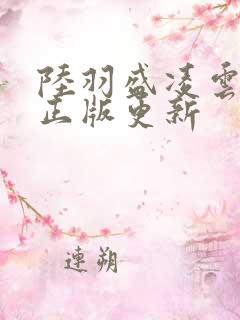 陸羽盛凌雲
正版更新
連朔